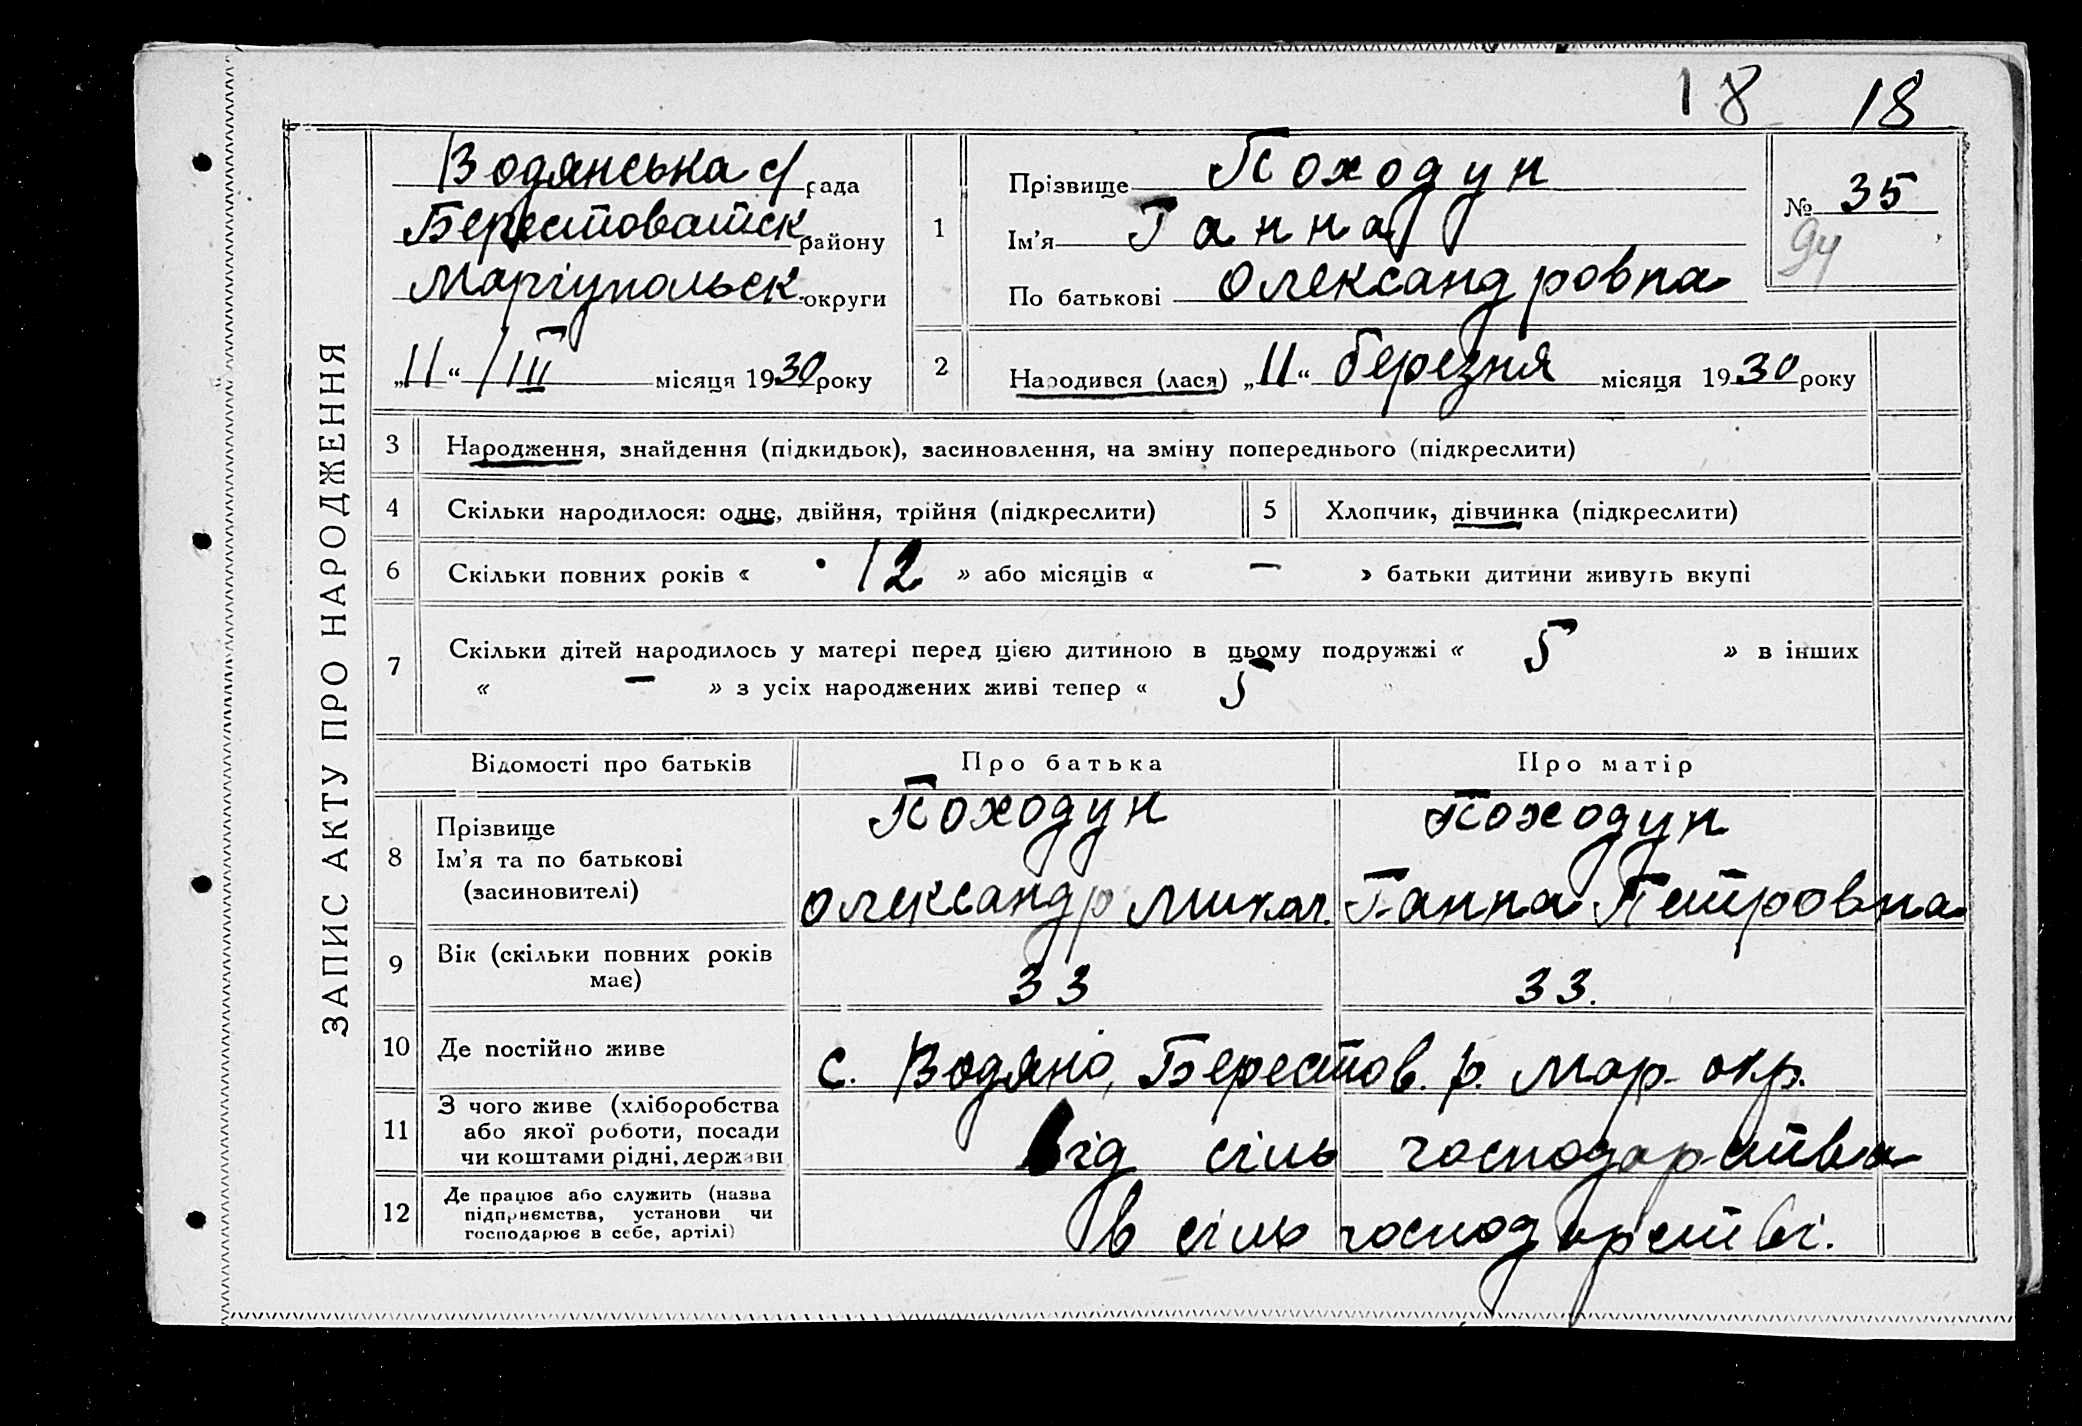 18 18
ЗАПИС АКТУ ПРО НАРОДЖЕННЯ
Водянська с/рада
Берестоватськ району
Маріупольськ. округи
„11“ /III місяця 1930 року
1
Прізвище Походун
Ім’я Ганна
По батькові Олександровна
№ 35
2
Народився (лася) „11“ березня місяця 1930 року
3 Народження, знайдення (підкидьок), засиновлення, на зміну попереднього (підкреслити)
4 Скільки народилося: одне, двійня, трійня (підкреслити) 5 Хлопчик, дівчинка (підкреслити)
6 Скільки повних років « 12 » або місяців « — » батьки дитини живуть вкупі
7 Скільки дітей народилось у матері перед цією дитиною в цьому подружжі « 5 » в інших
« — » з усіх народжених живі тепер « 5
Відомості про батьків Про батька Про матір
8 Прізвище
Ім’я та по батькові
(засиновителі)
Походун
Олександр Микол.
Походун
Ганна Петровна
9 Вік (скільки повних років
має)
33 33.
10 Де постійно живе с. Водяно, Берестов. р. Мар. окр.
11 З чого живе (хліборобства
або якої роботи, посади
чи коштами рідні, держави
від сіль господарства
12 Де працює або служить (назва
підприємства, установи чи
господарює в себе, артілі)
в сіль господарстві.